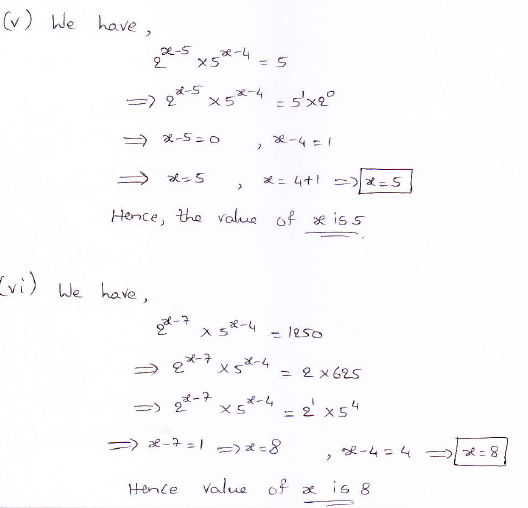 (v) We have,
2^{x-5} × 5^{x-4} = 5
⇒ 2^{x-5} × 5^{x-4} = 5^1 × 2^0
⇒ x-5 = 0 , x-4 = 1
⇒ x = 5 , x = 4+1 ⇒ x = 5
Hence, the value of x is 5
(vi) We have,
2^{x-7} × 5^{x-4} = 1250
⇒ 2^{x-7} × 5^{x-4} = 2 × 625
⇒ 2^{x-7} × 5^{x-4} = 2^1 × 5^4
⇒ x-7 = 1 ⇒ x = 8 , x-4 = 4 ⇒ x = 8
Hence value of x is 8